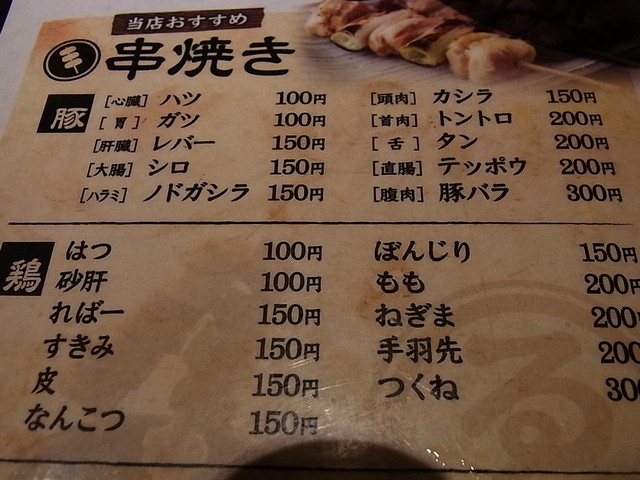 当店おすすめ
串焼き
豚
[心臓] ハツ 100円
[胃] ガツ 100円
[肝臓] レバー 150円
[大腸] シロ 150円
[ハラミ] ノドガシラ 150円
[頭肉] カシラ 150円
[首肉] トントロ 200円
[舌] タン 200円
[直腸] テッポウ 200円
[腹肉] 豚バラ 300円
鶏
はつ 100円
砂肝 100円
ればー 150円
すきみ 150円
皮 150円
なんこつ 150円
ぼんじり 150円
もも 200円
ねぎま 200
手羽先 200
つくね 30